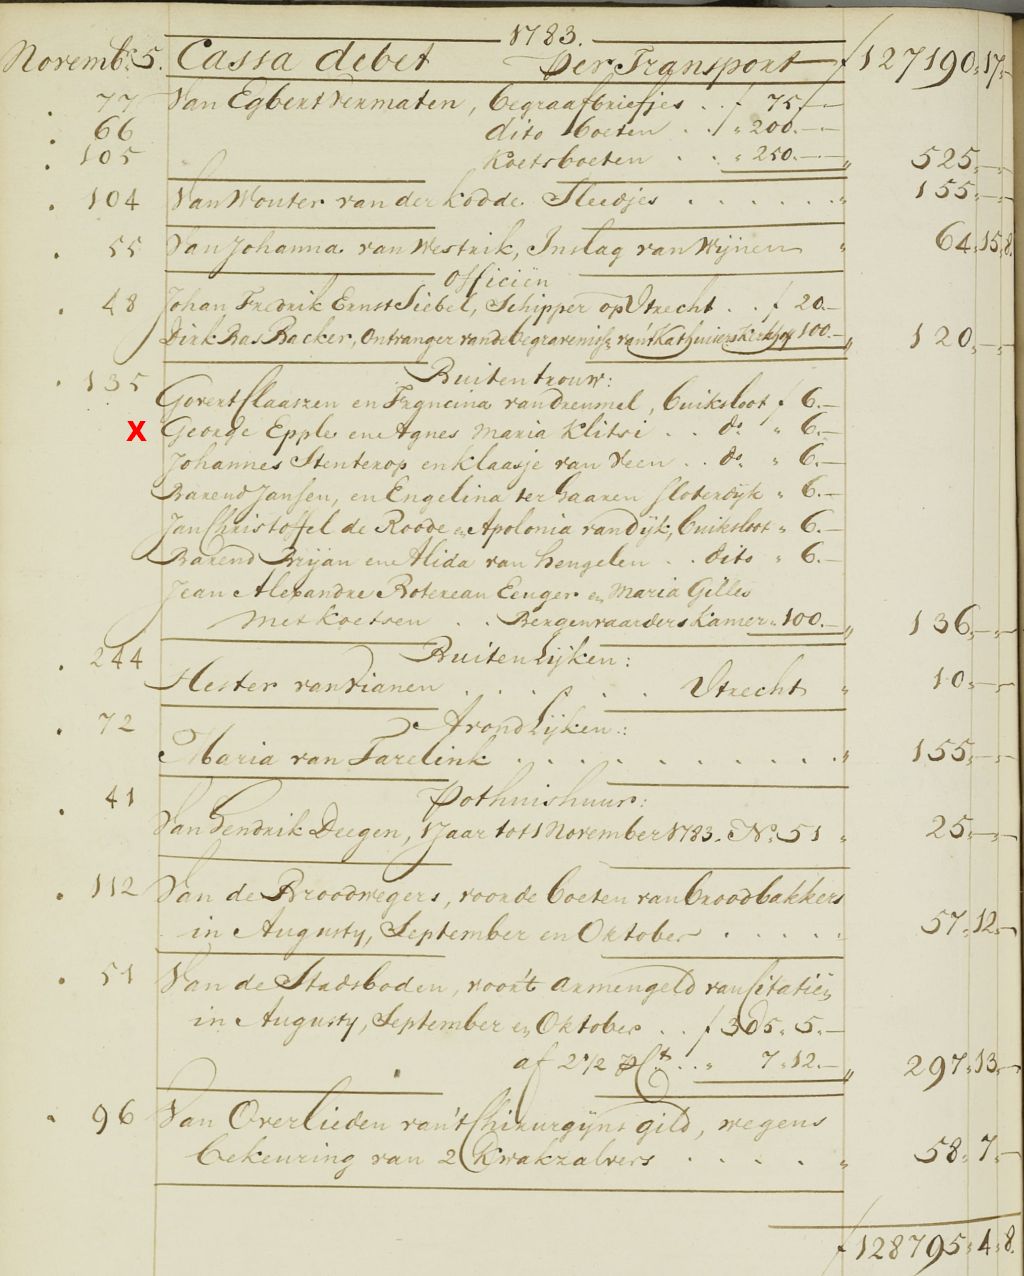 1783.
Novemb: 5. Cassa debet Per Transport f 127190,, 17,, -
77 Van Egbert Vermaten, begraafbriefjes . . f 75.--
66 dito boeten . . " 200.--
105 Koetsboeten . . " 250.-- " 525,, -,, -
104 Van Wouter van der Kodde Sleedjes . . . . . . " 155,, -,, -
55 Van Johanna van Westrik, Inslag van Wijnen " 64,, 15,, 8.
Officiën
48 Johan Fredrik Ernst Siebel, Schipper op Utrecht . . f 20.-
Dirk Bas Backer, Ontvanger vande begravenisse van't Kathuisers Kerkhof 100.- " 120,, -,, -
135 Buitentrouw:
Govert Claaszen en Francina van Dreumel, buiksloot f 6.-
X George Epple en Agnes Maria Klitsi . . do. " 6.-
Johannes Stenterop en Klaasje van Veen . . do. " 6.-
Barend Jansen, en Engelina ter Haaren Sloterdijk " 6.-
Jan Christoffel de Roode en Apolonia van Dijk, buiksloot " 6.-
Barend Brijan en Alida van Hengelen . . dito " 6.-
Jean Alexandre Rotereau Eeuger en Maria Gilles
Met Koetsen . . Bergenvaarders Kamer " 100.- " 136,, -,, -
244 Buiten Lijken:
Hester van Vianen . . . . . . Utrecht " 10,, -,, -
72 Avond Lijken:
Maria van Farelink . . . . . . . . . . . " 155,, -,, -
41 Pothuishuur:
Van Hendrik Deegen, 1 Jaar tot 1 November 1783. No. 51 " 25,, -,, -
112 Van de Broodwegers, voor de boeten van broodbakkers
in Augusty, September en Oktober . . . . . 57,, 12,, -
51 Van de Stadsboden, voor't armengeld van Citatiën
in Augusty, September en Oktober . . f 305,, 5.-
af 2 1/2 pCt. . . " 7,, 12.- " 297,, 13,, -
96 Van Overlieden van't Chirurgijns gild, wegens
bekeuring van 2 Kwakzalvers . . . . " 58,, 7,, -
f 128795,, 4,, 8.